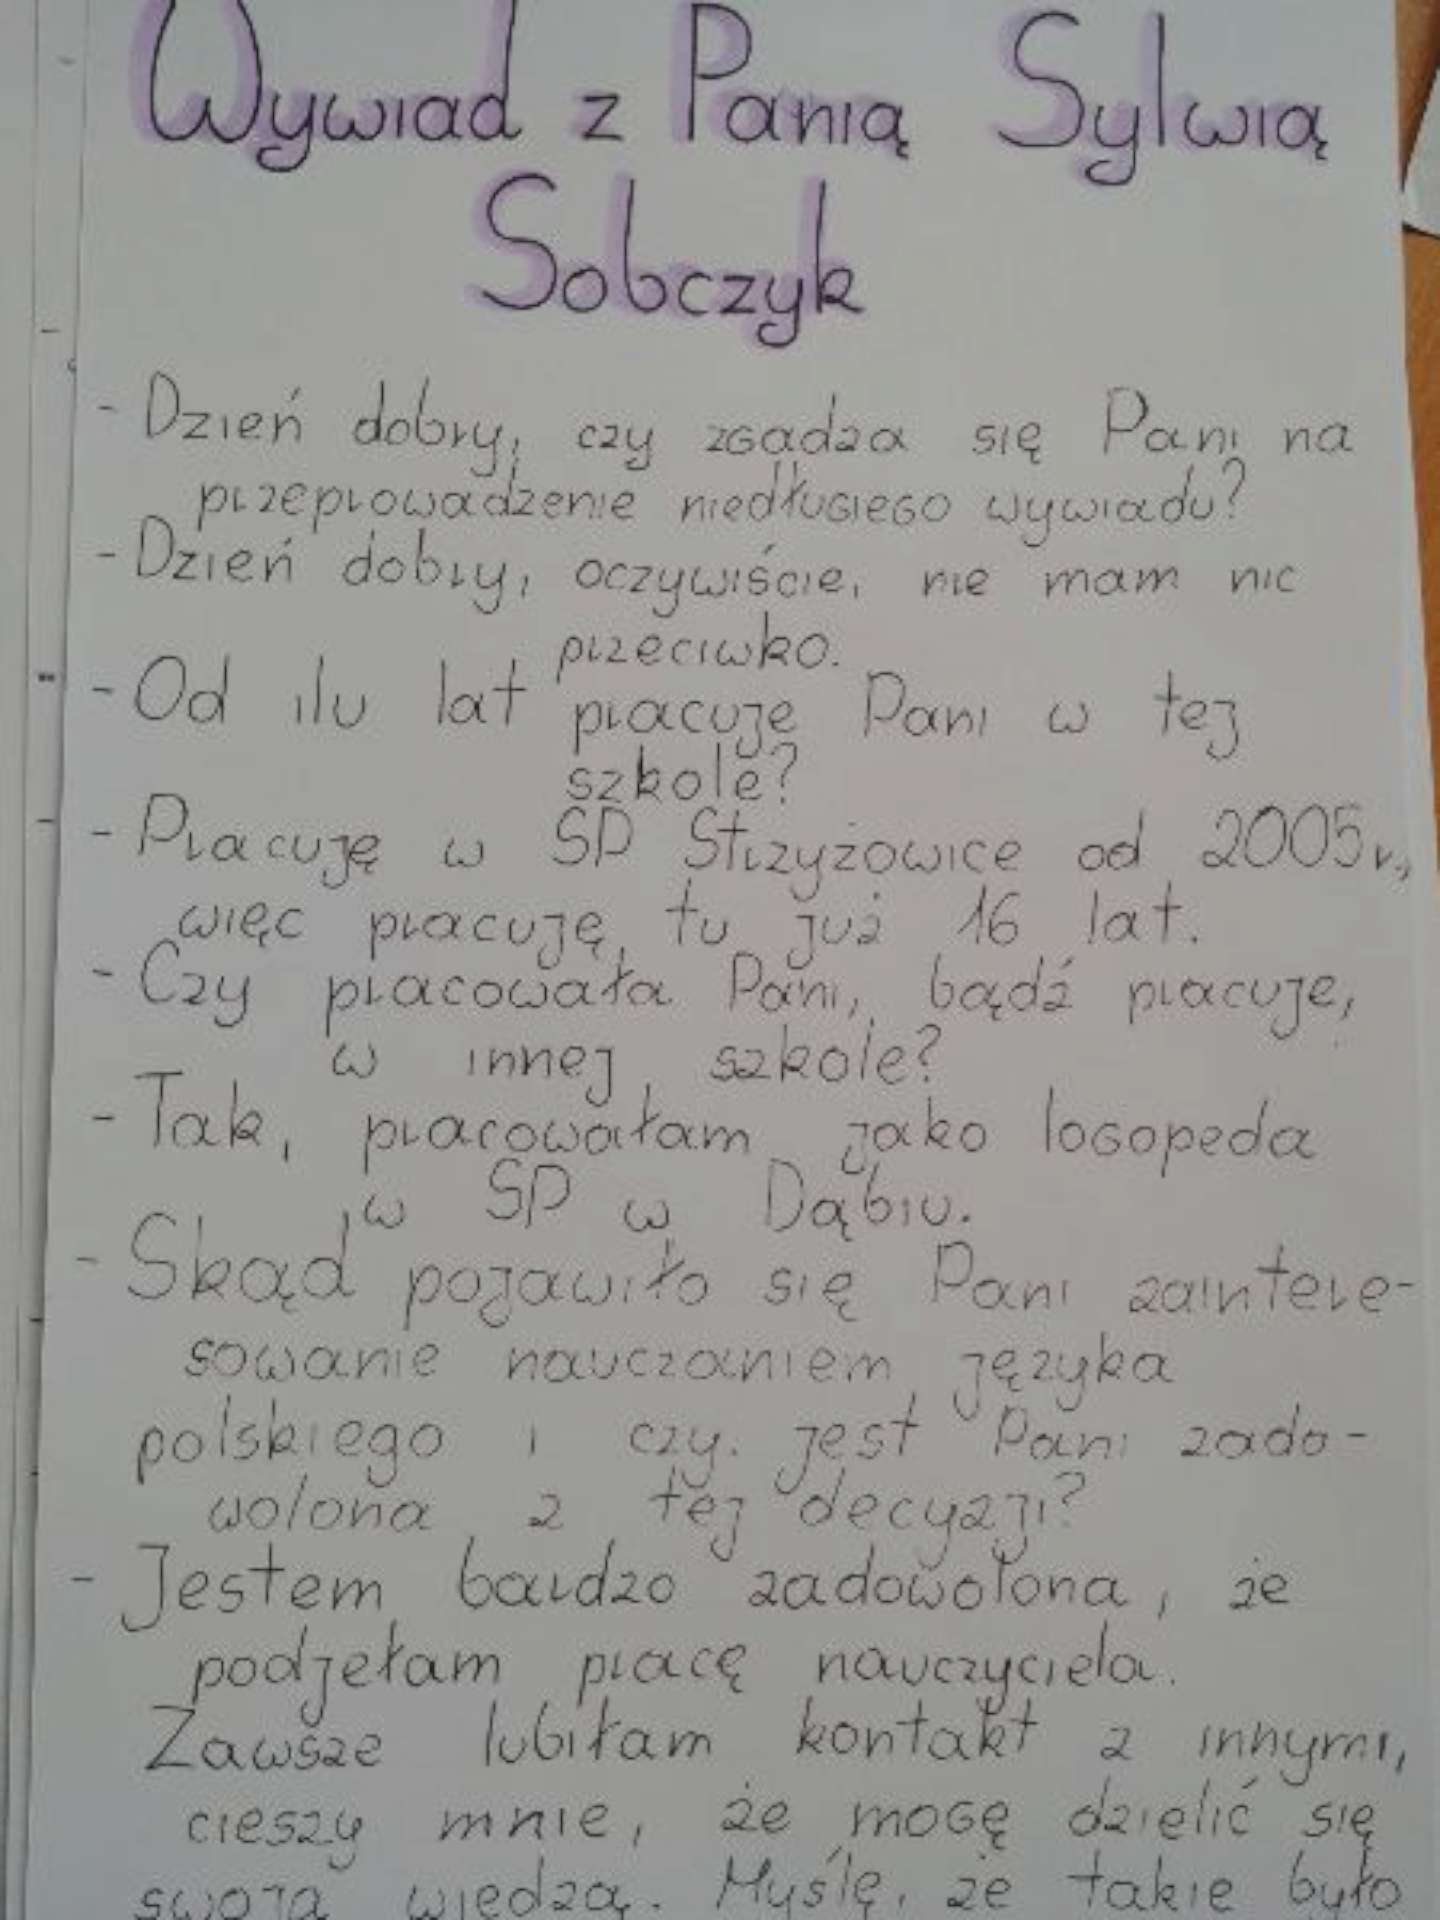 Wywiad z Panią Sylwią
Sobczyk
- Dzień dobry, czy zgadza się Pani na
przeprowadzenie niedługiego wywiadu?
- Dzień dobry, oczywiście, nie mam nic
przeciwko.
- Od ilu lat pracuje Pani w tej
szkole?
- Pracuję w SP Strzyżowice od 2005r.,
więc pracuję tu już 16 lat.
- Czy pracowała Pani, bądź pracuje,
w innej szkole?
- Tak, pracowałam jako logopeda
w SP w Dąbiu.
- Skąd pojawiło się Pani zaintere-
sowanie nauczaniem języka
polskiego i czy jest Pani zado-
wolona z tej decyzji?
- Jestem bardzo zadowolona, że
podjełam pracę nauczyciela.
Zawsze lubiłam kontakt z innymi,
cieszy mnie, że mogę dzielić się
swoją wiedzą. Myślę, że takie było